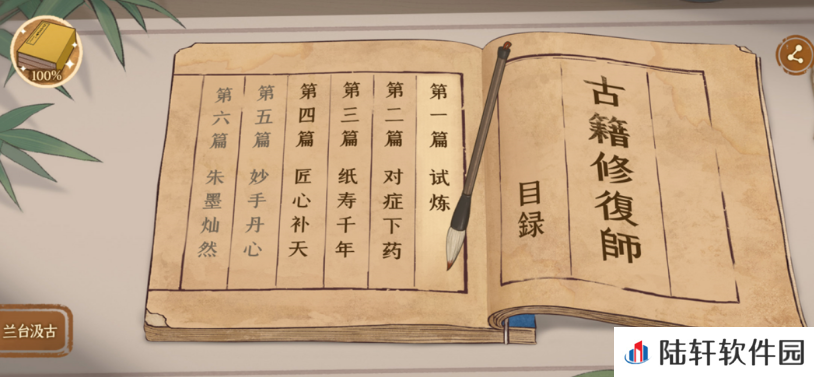 100%
古籍修復師
目録
第一篇 试炼
第二篇 对症下药
第三篇 纸寿千年
第四篇 匠心补天
第五篇 妙手丹心
第六篇 朱墨灿然
兰台汲古
陆轩软件园